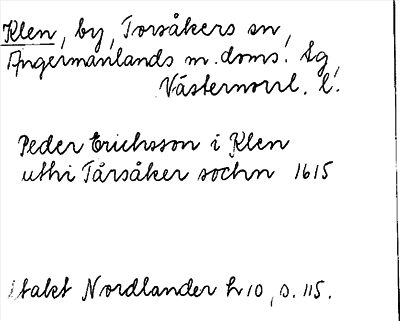 Klen, by, Torsåkers sn,
Ångermanlands m. doms. sg,
Västernorrl. l.
Peder Erichsson i Klen
uthi Tårsåker sochn 1615
Nordlander h 10, s. 115.